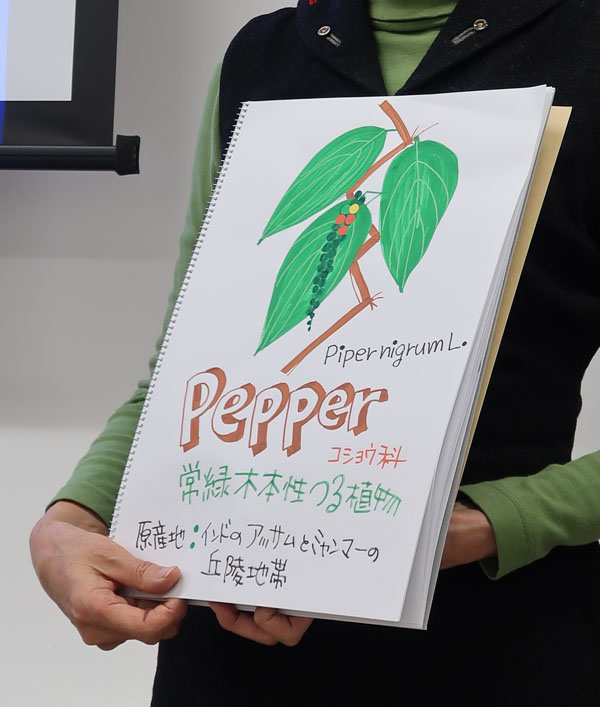 Piper nigrum L.
Pepper
コショウ科
常緑木本性つる植物
原産地:インドのアッサムとミャンマーの
丘陵地帯